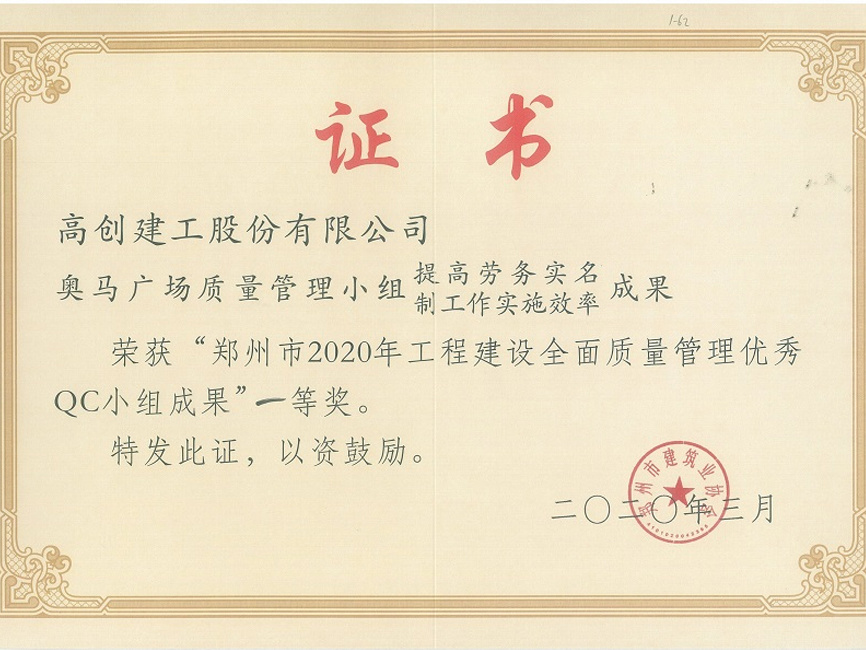 1-62
证 书
高创建工股份有限公司
奥马广场质量管理小组提高劳务实名制工作实施效率成果
荣获“郑州市2020年工程建设全面质量管理优秀
QC小组成果”一等奖。
特发此证，以资鼓励。
二〇二〇年三月
郑州市建筑业协会